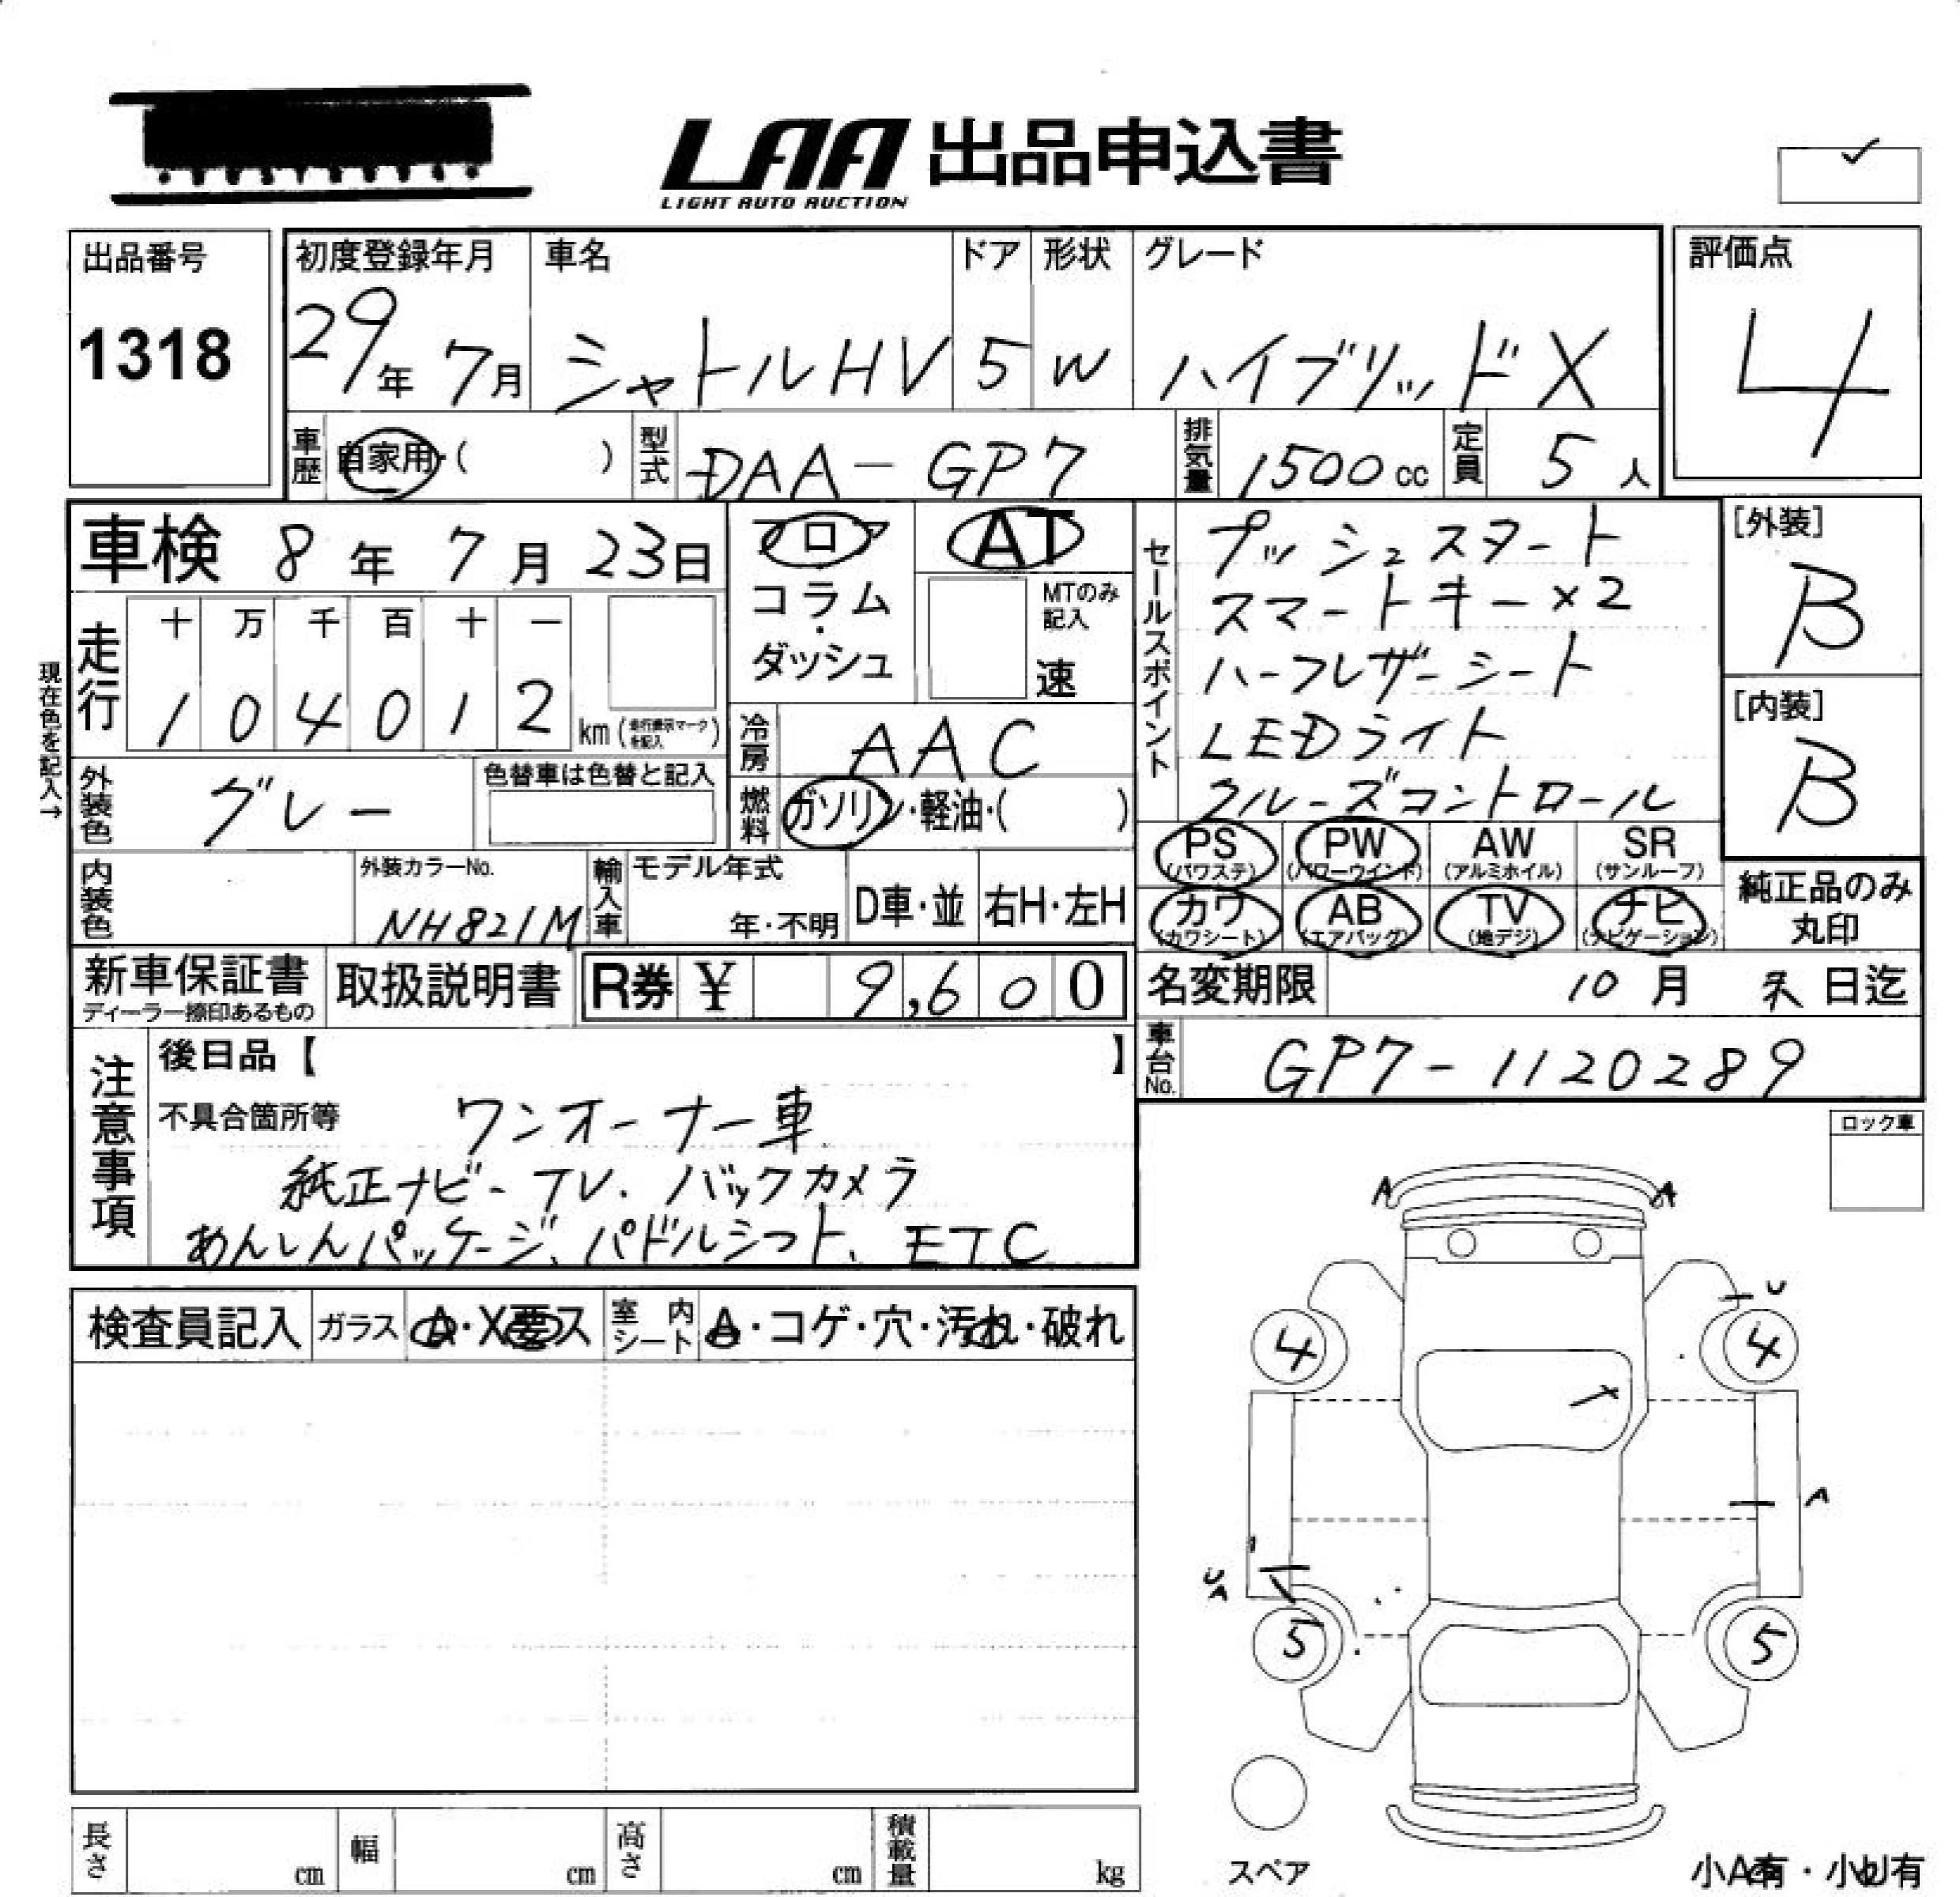 LAA 出品申込書
LIGHT AUTO AUCTION
出品番号
1318
初度登録年月
29年 7月
車名
シャトルHV
ドア
5
形状
W
グレード
ハイブリッドX
評価点
4
車歴 自家用・( )
型式 DAA-GP7
排気量 1500cc
定員 5人
車検 8年 7月 23日
フロア
コラム
・
ダッシュ
AT
MTのみ記入
速
セールスポイント
プッシュスタート
スマートキー×2
ハーフレザーシート
LEDライト
クルーズコントロール
[外装]
B
[内装]
B
現在色を記入→
走行
十 万 千 百 十 一
1 0 4 0 1 2 km
冷房 AAC
外装色 グレー
色替車は色替と記入
燃料 ガソリン・軽油・( )
PS (パワステ)
PW (パワーウインド)
AW (アルミホイル)
SR (サンルーフ)
カワ (カワシート)
AB (エアバッグ)
TV (地デジ)
ナビ (ナビゲーション)
純正品のみ
丸印
内装色
外装カラーNo.
NH821M
輸入車
モデル年式
年・不明
D車・並
右H・左H
新車保証書
ディーラー捺印あるもの
取扱説明書
R券 ¥ 9,600
名変期限 10月 末日迄
車台No. GP7-1120289
注意事項
後日品【 】
不具合箇所等
ワンオーナー車
純正ナビ-TV.バックカメラ
あんしんパッケージ、パドルシフト、ETC
ロック車
検査員記入
ガラス A・X要ス
室内シート A・コゲ・穴・汚れ・破れ
A A
U
4 4
A
U
A
5 5
スペア
小A有・小U有
長さ cm
幅 cm
高さ cm
積載量 kg